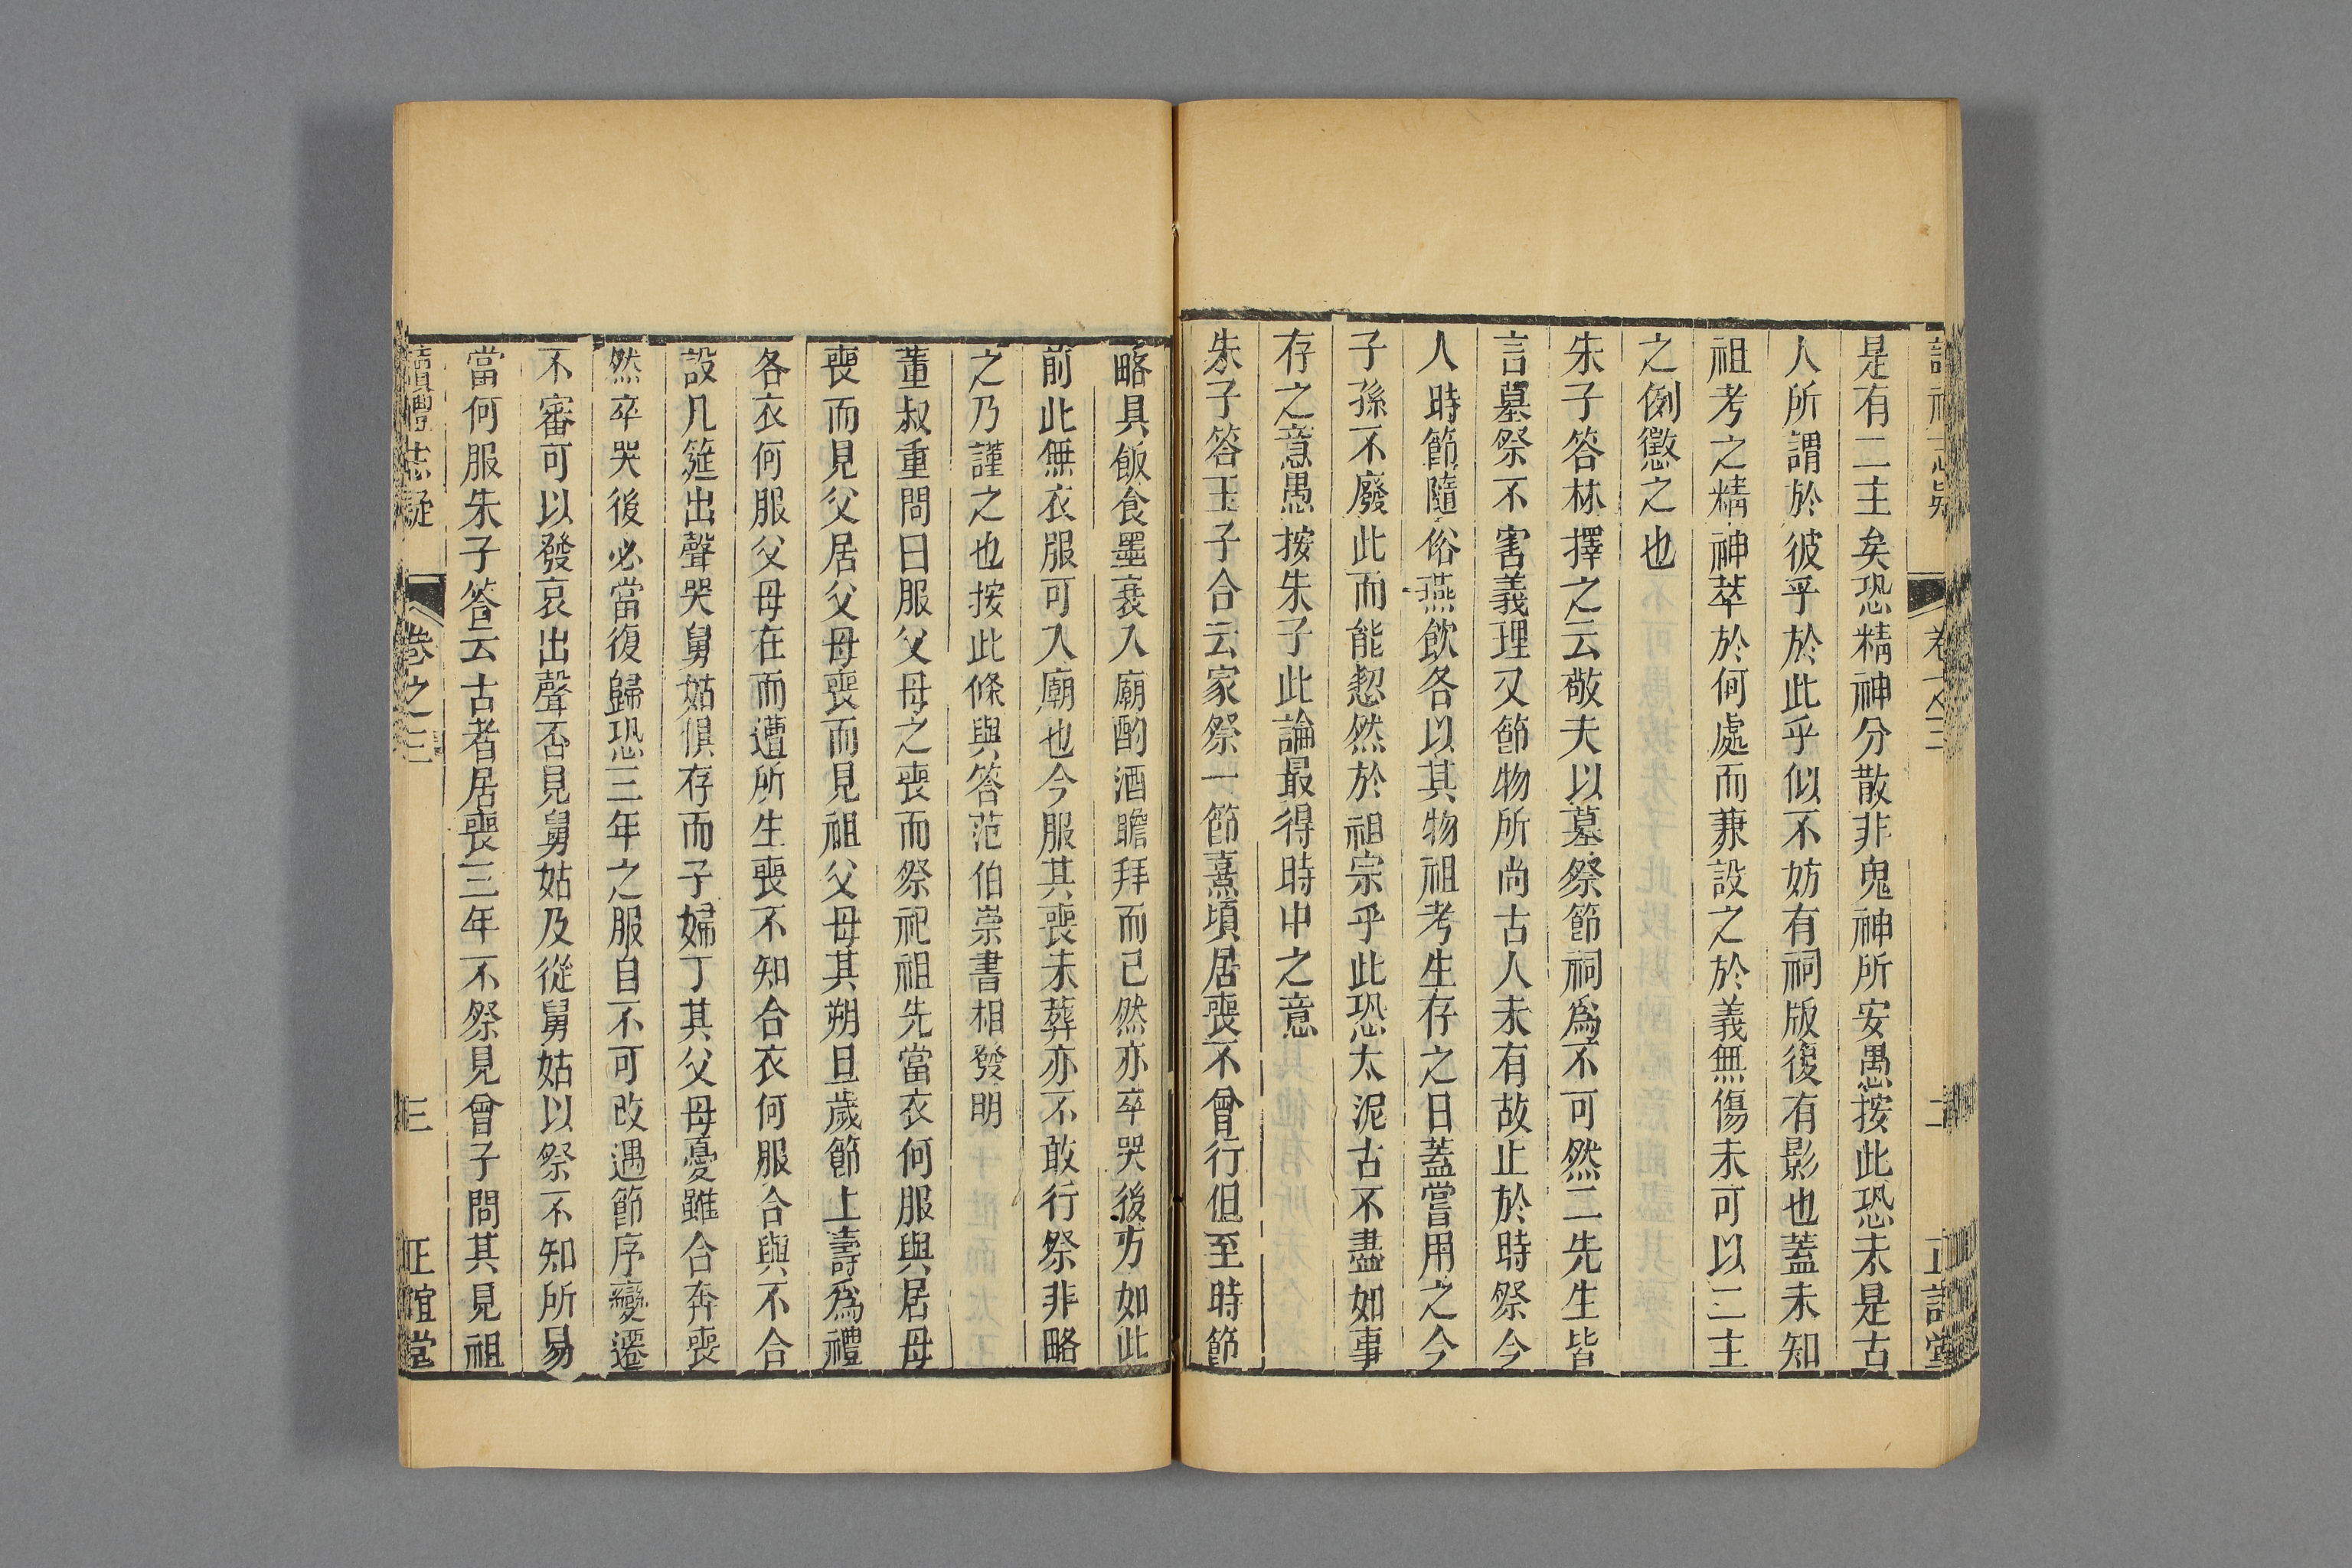 是有二主矣恐精神分散非鬼神所安愚按此恐未是古
人所謂於彼乎於此乎似不妨有祠版復有影也蓋未知
祖考之精神萃於何處而兼設之於義無傷未可以二主
之例懲之也
朱子答林擇之云敬夫以墓祭節祠爲不可然二先生皆
言墓祭不害義理又節物所尚古人未有故止於時祭今
人時節隨俗燕飲各以其物祖考生存之日蓋嘗用之今
子孫不廢此而能恝然於祖宗乎此恐太泥古不盡如事
存之意愚按朱子此論最得時中之意
朱子答王子合云家祭一節熹頃居喪不曾行但至時節
略具飯食墨衰入廟酌酒瞻拜而已然亦卒哭後方如此
前此無衣服可入廟也今服其喪未葬亦不敢行祭非略
之乃謹之也按此條與答范伯崇書相發明
董叔重問曰服父母之喪而祭祀祖先當衣何服與居母
喪而見父居父母喪而見祖父母其朔旦歲節上壽爲禮
各衣何服父母在而遭所生喪不知合衣何服合與不合
設几筵出聲哭舅姑俱存而子婦丁其父母憂雖合奔喪
然卒哭後必當復歸恐三年之服自不可改遇節序變遷
不審可以發哀出聲否見舅姑及從舅姑以祭不知所易
當何服朱子答云古者居喪三年不祭見曾子問其見祖
讀禮志疑
卷之三
三
正誼堂